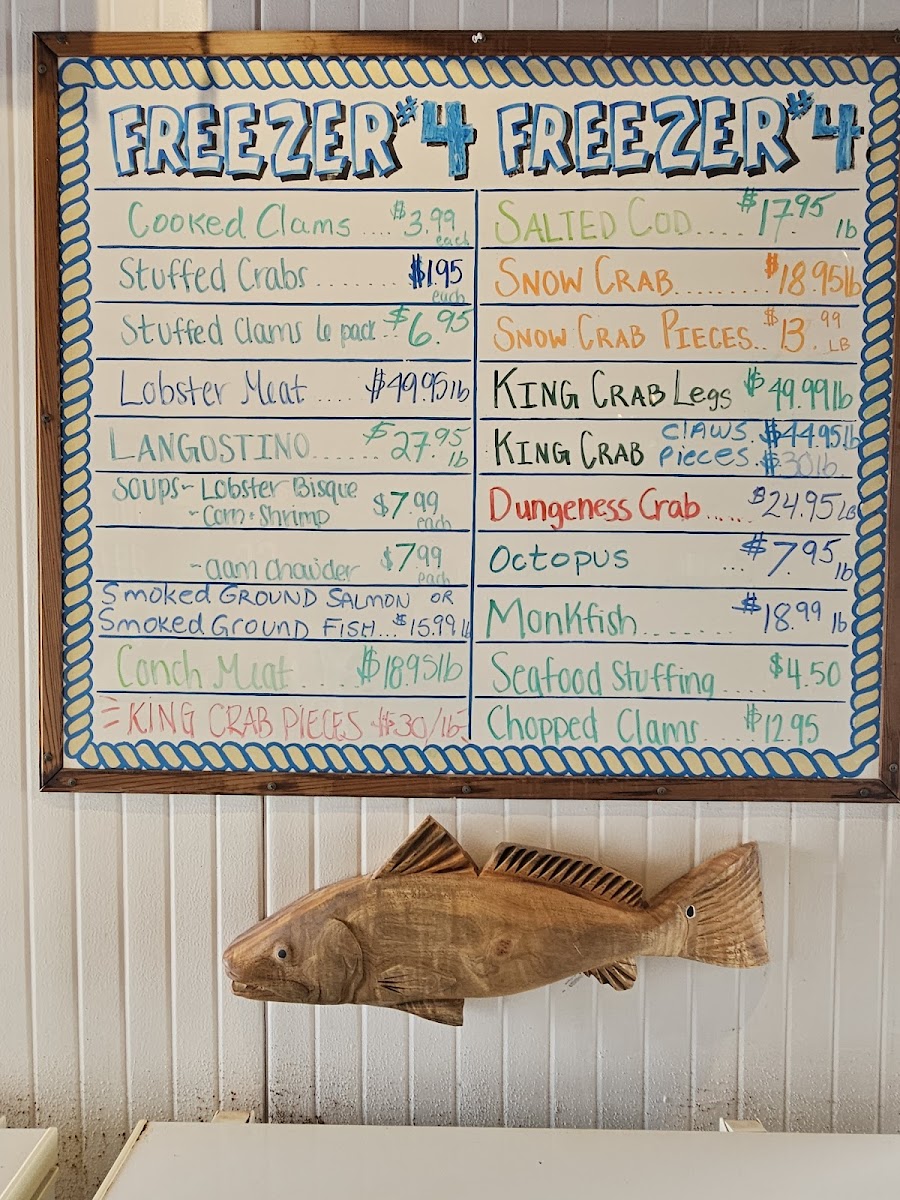 FREEZER #4
Cooked Clams .... $3.99 each
Stuffed Crabs ........ $1.95 each
Stuffed Clams 6 pack .. $6.95
Lobster Meat .... $49.95 lb
LANGOSTINO....... $27.95 lb
Soups~ Lobster Bisque
~ Corn + Shrimp $7.99 each
~ clam chowder $7.99 each
Smoked GROUND SALMON OR
Smoked Ground FISH...$15.99 lb
Conch Meat ..... $18.95 lb
KING CRAB PIECES $30/lb
FREEZER #4
SALTED COD..... $17.95 lb
SNOW CRAB........ $18.95 lb
SNOW CRAB PIECES.. $13.99 LB
KING CRAB Legs $49.99 lb
KING CRAB CLAWS. $44.95 lb
Pieces. $30 lb.
Dungeness Crab...... $24.95 LB
OCTOPUS ... $7.95 lb
Monkfish........ $18.99 lb
Seafood Stuffing ..... $4.50
Chopped Clams.... $12.95